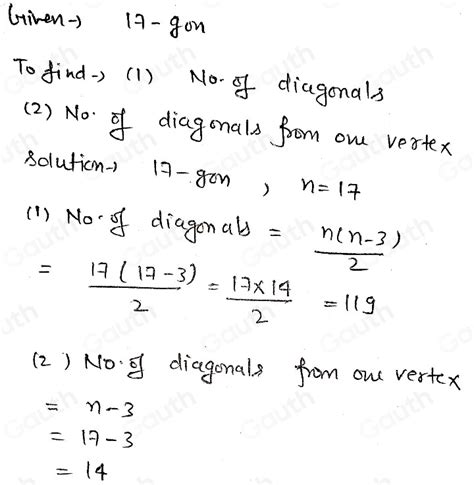 Given → 17-gon
To find → (1) No. of diagonals
(2) No. of diagonals from one vertex
Solution → 17-gon , n=17
(1) No. of diagonals = n(n-3)/2
= 17(17-3)/2 = 17×14/2 = 119
(2) No. of diagonals from one vertex
= n-3
= 17-3
= 14